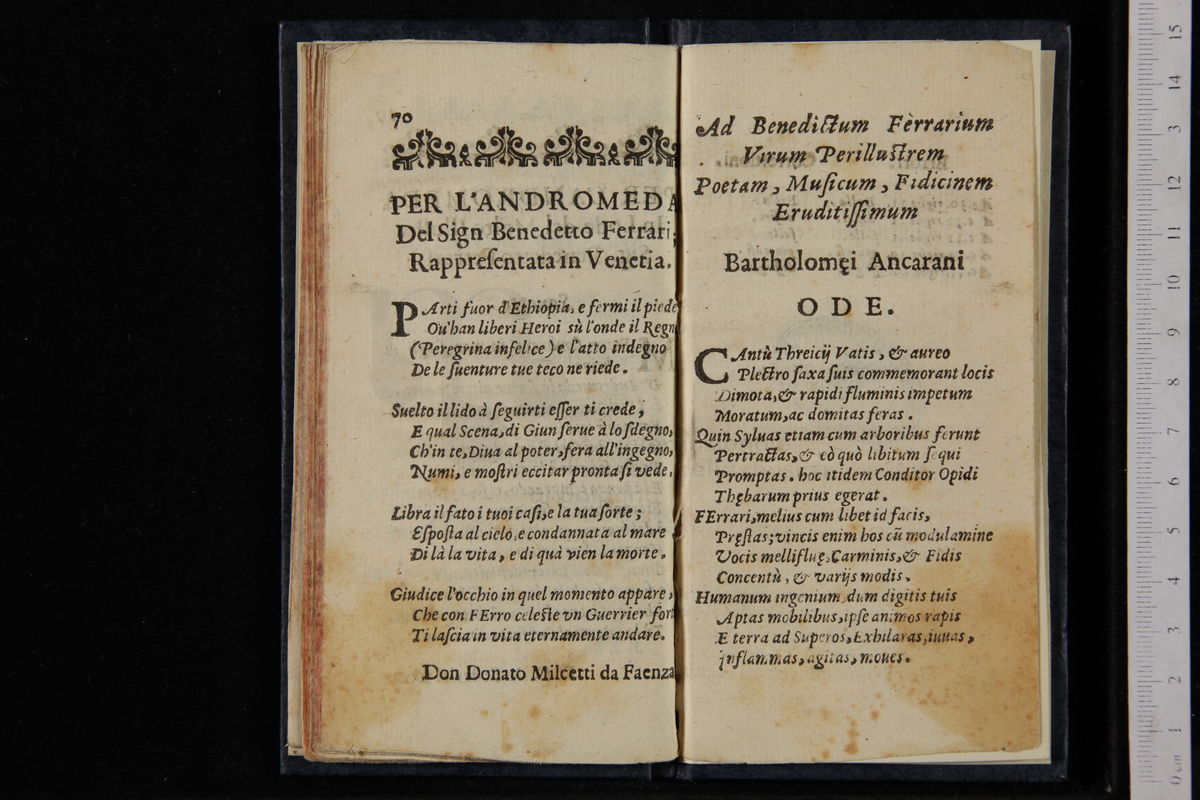 70
PER L'ANDROMEDA
Del Sign Benedetto Ferrari;
Rappreſentata in Venetia.
PArti fuor d'Ethiopia, e fermi il piede
Ou'han liberi Heroi sù l'onde il Regn
(Peregrina infelice) e l'atto indegno
De le ſuenture tue teco ne riede.
Suelto il lido à ſeguirti eſſer ti crede,
E qual Scena, di Giun ſerue à lo ſdegno,
Ch'in te, Diua al poter, fera all'ingegno,
Numi, e moſtri eccitar pronta ſi vede,
Libra il fato i tuoi caſi, e la tua ſorte;
Eſpoſta al cielo, e condannata al mare
Di là la vita, e di quà vien la morte.
Giudice l'occhio in quel momento appare,
Che con FErro celeſte vn Guerrier fort
Ti laſcia in vita eternamente andare.
Don Donato Milcetti da Faenza
Ad Benedictum Ferrarium
Virum Perilluſtrem
Poetam, Muſicum, Fidicinem
Eruditiſſimum
Bartholomęi Ancarani
ODE.
CAntù Threicij Vatis, & aureo
Plectro ſaxa ſuis commemorant locis
Dimota, & rapidi fluminis impetum
Moratum, ac domitas feras.
Quin Syluas etiam cum arboribus ferunt
Pertractas, & eò quò libitum ſequi
Promptas. hoc itidem Conditor Opidi
Thębarum prius egerat.
FErrari, melius cum libet id facis,
Pręſtas; vincis enim hos cū modulamine
Vocis mellifluę, Carminis, & Fidis
Concentù, & varijs modis.
Humanum ingenium, dum digitis tuis
Aptas mobilibus, ipſe animos rapis
E terra ad Superos, Exhilaras, iuuas,
Inflammas, agitas, moues.
0 cm
1
2
3
4
5
6
7
8
9
10
11
12
3
14
15